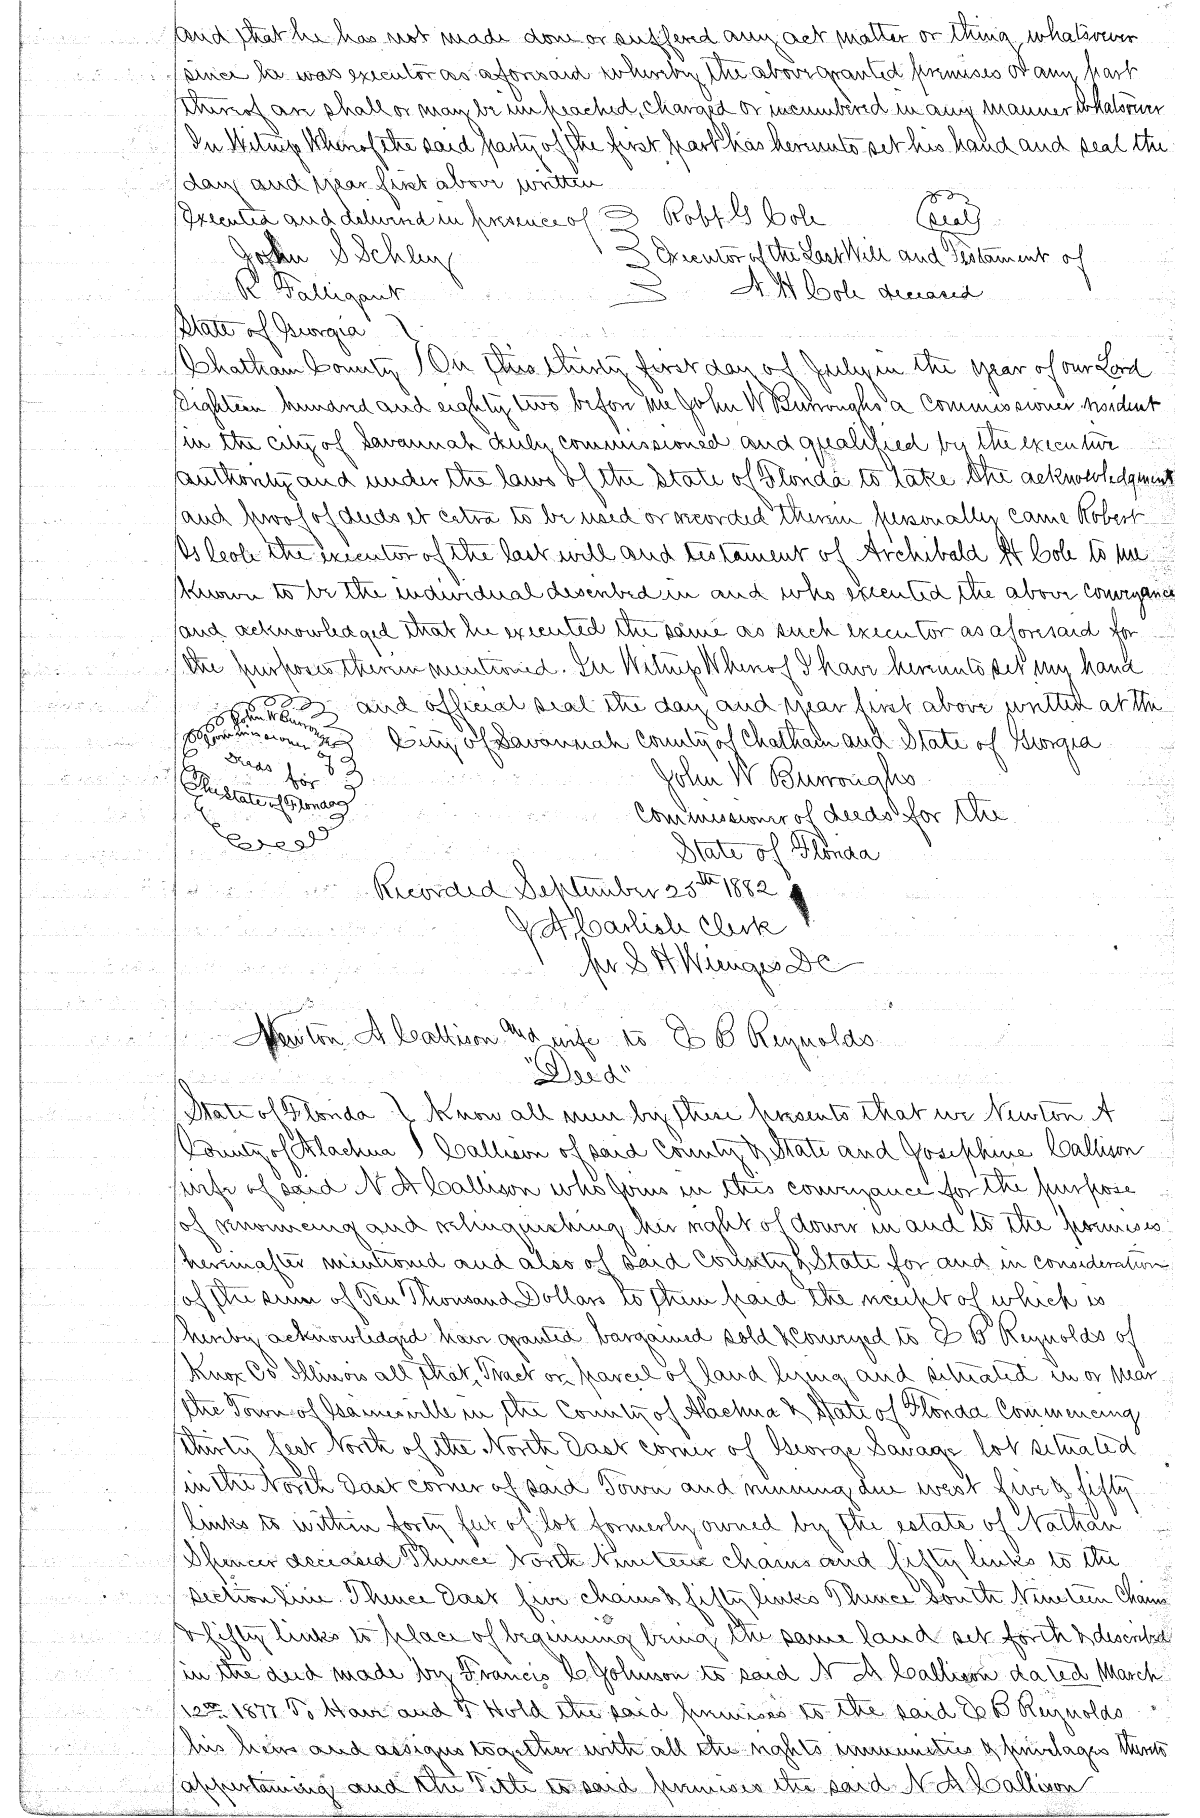 and that he has not made done or suffered any act matter or thing whatsoever
since he was executor as aforesaid whereby the above granted premises or any part
thereof are shall or may be impeached, charged or incumbered in any manner whatsoever
In Witness Whereof the said party of the first part has hereunto set his hand and seal the
day and year first above written
Executed and delivered in presence of Robt. G Cole (seal)
John S Schley Executor of the Last Will and Testament of
R Falligant A H Cole deceased
State of Georgia
Chatham County On this thirty first day of July in the year of our Lord
Eighteen hundred and eighty two before me John W Burroughs a commissioner resident
in the city of Savannah duly commissioned and qualified by the executive
authority and under the laws of the State of Florida to take the acknowledgment
and proof of deeds et cetra to be used or recorded therein personally came Robert
G Cole the executor of the last will and testament of Archibald H Cole to me
known to be the individual described in and who executed the above conveyance
and acknowledged that he executed the same as such executor as aforesaid for
the purposes therein mentioned. In Witness Whereof I have hereunto set my hand
and official seal the day and year first above written at the
John W Burroughs
Commissioner of
City of Savannah County of Chatham and State of Georgia
Deeds for
John W Burroughs
The State of Florida
Commissioner of deeds for the
Seal
State of Florida
Recorded September 25th 1882
J A Carlisle Clerk
pr S H Wienges DC
Newton A Callison and wife to E B Reynolds
"Deed"
State of Florida } Know all men by these presents that we Newton A
County of Alachua } Callison of said County & State and Josephine Callison
wife of said N A Callison who joins in this conveyance for the purpose
of renouncing and relinquishing her right of dower in and to the premises
hereinafter mentioned and also of said County & State for and in consideration
of the sum of Ten Thousand Dollars to them paid the receipt of which is
hereby acknowledged have granted bargained sold & conveyed to E B Reynolds of
Knox Co Illinois all that Tract or parcel of land lying and situated in or near
the Town of Gainesville in the County of Alachua & State of Florida Commencing
thirty feet North of the North East corner of George Savage lot situated
in the North East corner of said Town and running due west five & fifty
links to within forty feet of lot formerly owned by the estate of Nathan
Spencer deceased Thence North Nineteen chains and fifty links to the
section line. Thence East five chains & fifty links Thence South Nineteen Chains
& fifty links to place of beginning being the same land set forth & described
in the deed made by Francis C Johnson to said N A Callison dated March
12th 1877 To Have and To Hold the said premises to the said E B Reynolds
his heirs and assigns together with all the rights immunities & privelages thereto
appertaining and the Title to said premises the said N A Callison